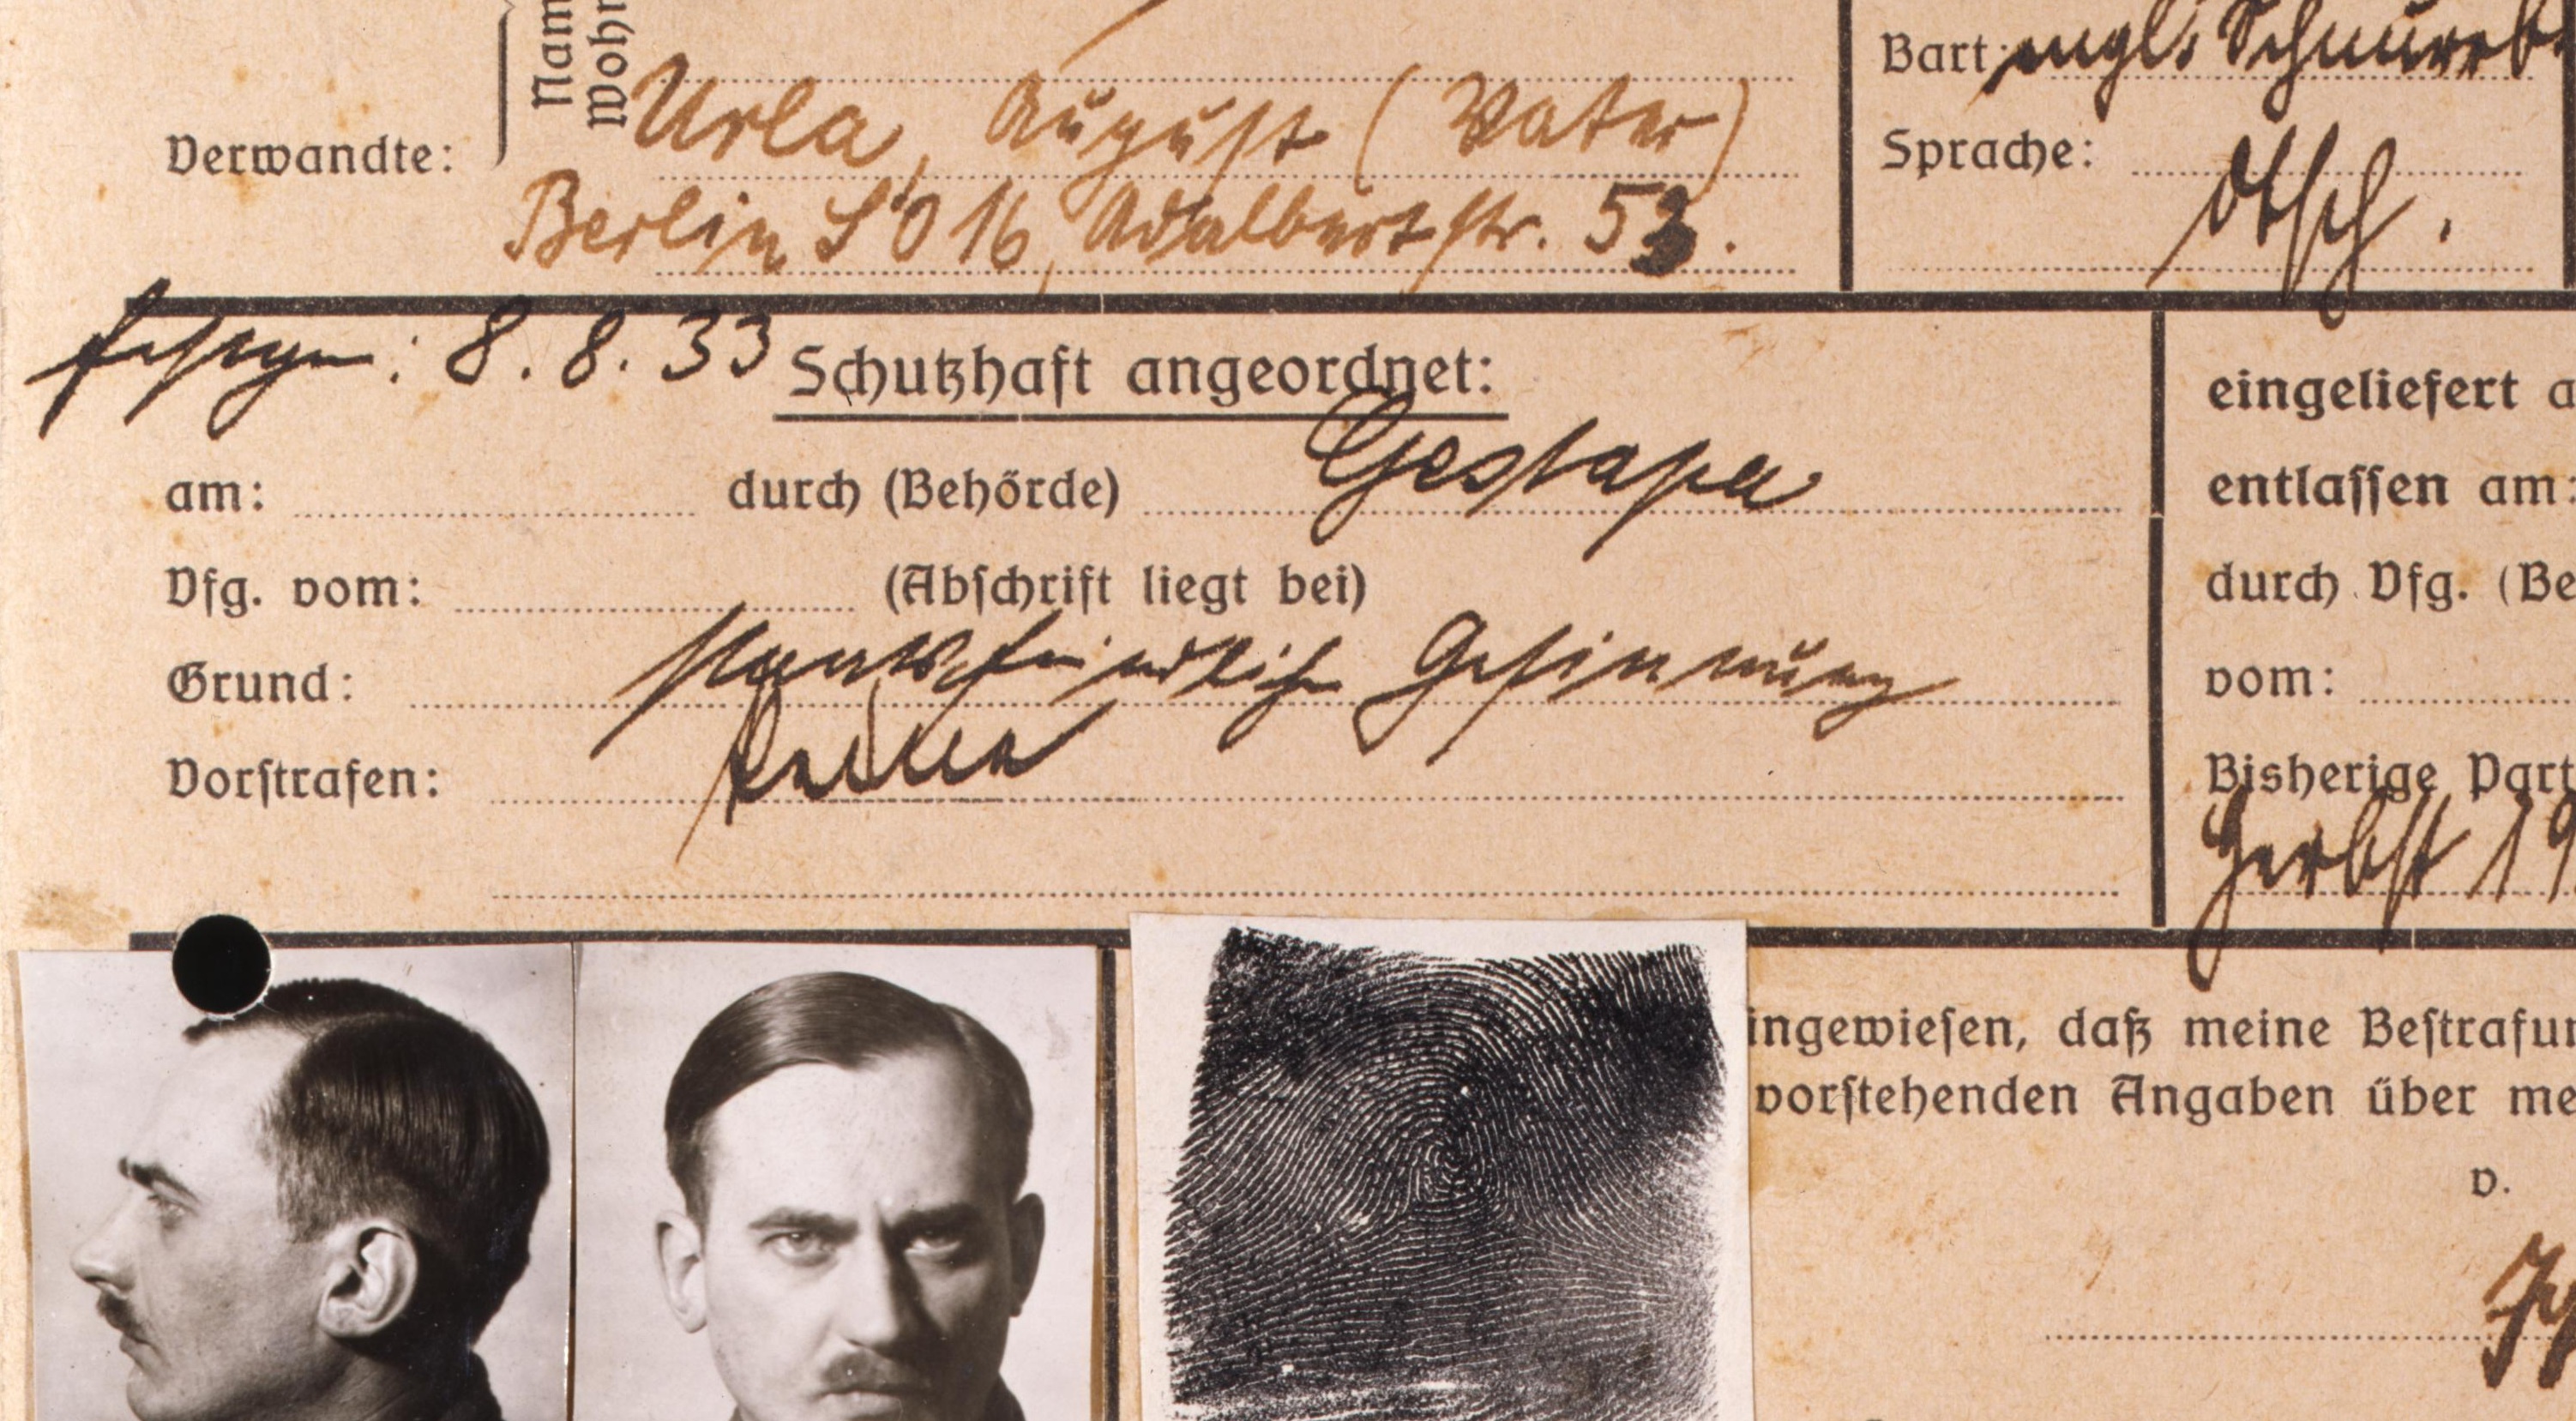 Nam
Wohn
Verwandte: Urla, August (Vater)
Berlin SO 16, Adalbertstr. 53.
Bart: engl. Schnurrb.
Sprache: dtsch.
festgen: 8.8.33
Schutzhaft angeordnet:
am: durch (Behörde) Gestapa
Vfg. vom: (Abschrift liegt bei)
Grund: staatsfeindliche Gesinnung
Vorstrafen: keine
eingeliefert a
entlassen am:
durch Vfg. (Be
vom:
Bisherige Part
Herbst 19
ingewiesen, daß meine Bestrafun
vorstehenden Angaben über me
v.